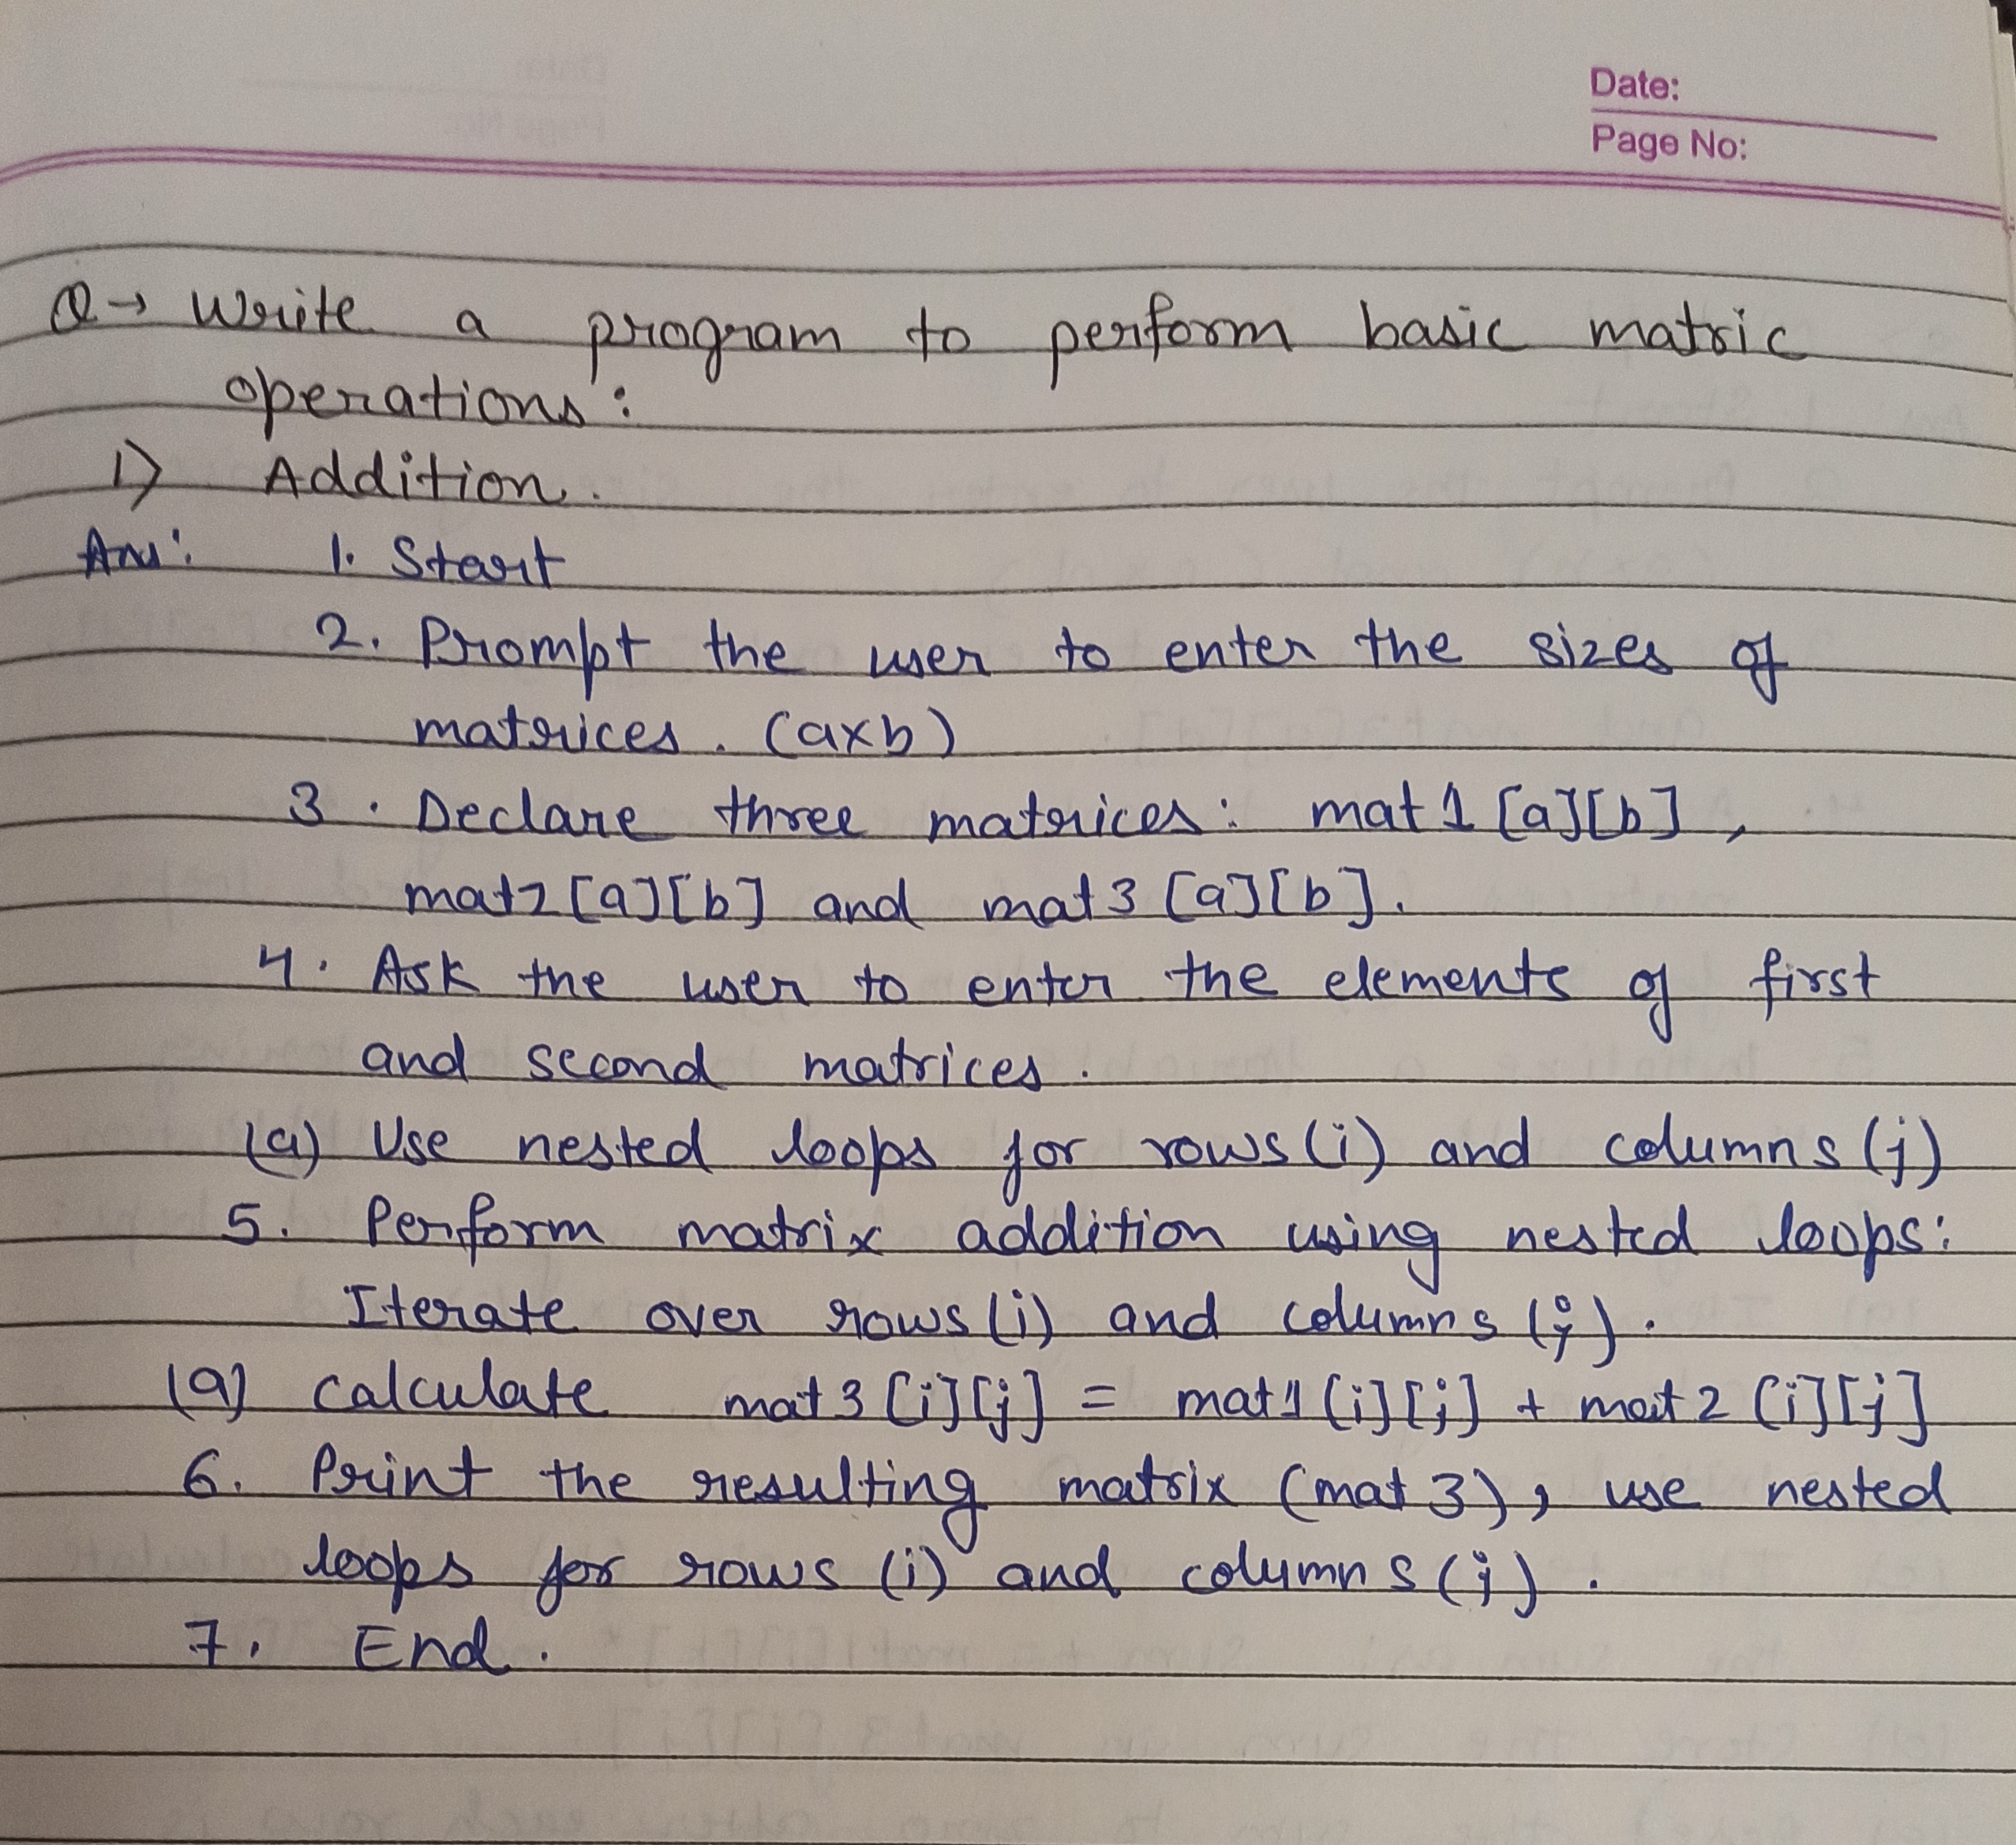 Date:
Page No:
Q→ Write a program to perform basic matric
operations:
1) Addition.
Ans: 1. Start
2. Prompt the user to enter the sizes of
matrices. (axb)
3. Declare three matrices: mat1[a][b],
mat2[a][b] and mat3[a][b].
4. Ask the user to enter the elements of first
and second matrices.
(a) Use nested loops for rows(i) and columns(j)
5. Perform matrix addition using nested loops:
Iterate over rows(i) and columns(j).
(a) calculate mat3[i][j] = mat1[i][j] + mat2[i][j]
6. Print the resulting matrix (mat 3), use nested
loops for rows (i) and columns(j).
7. End.